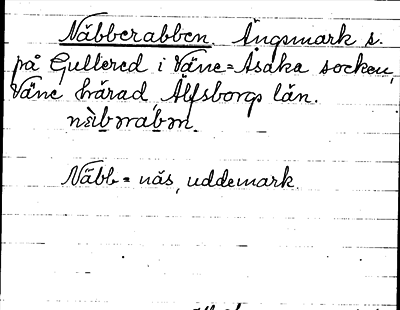 Näbberabben. Ängsmark s.
på Gullered i Väne=Åsaka socken,
Väne härad, Älfsborgs län.
nä̀bərabən.
Näbb = näs, uddemark.